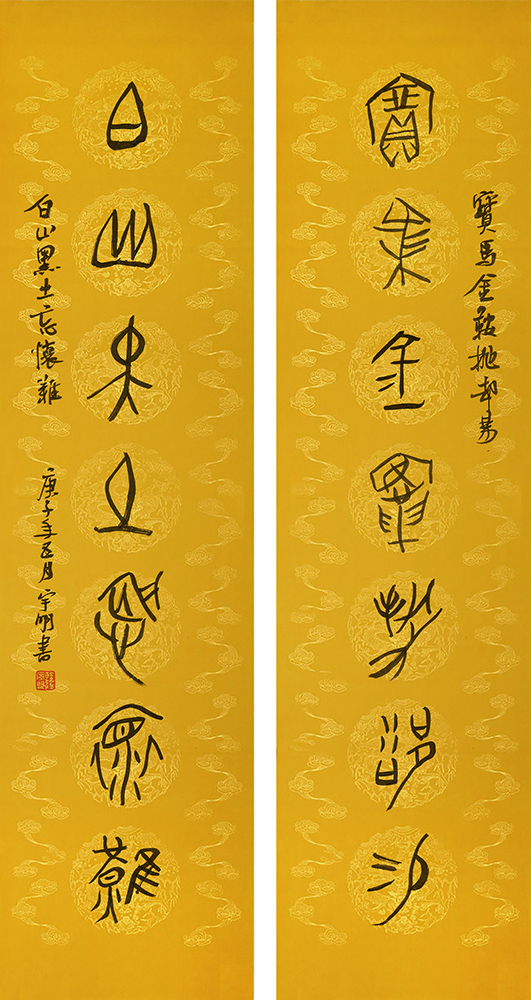 寶馬金鞍拋却易
寶馬金鞍拋却易
白山黑土忘懷難
白山黑土忘懷難
庚子年五月宇明書